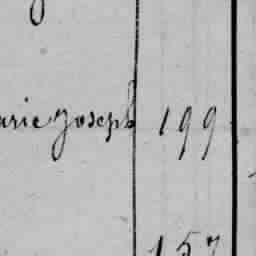 arie Joseph 199
157